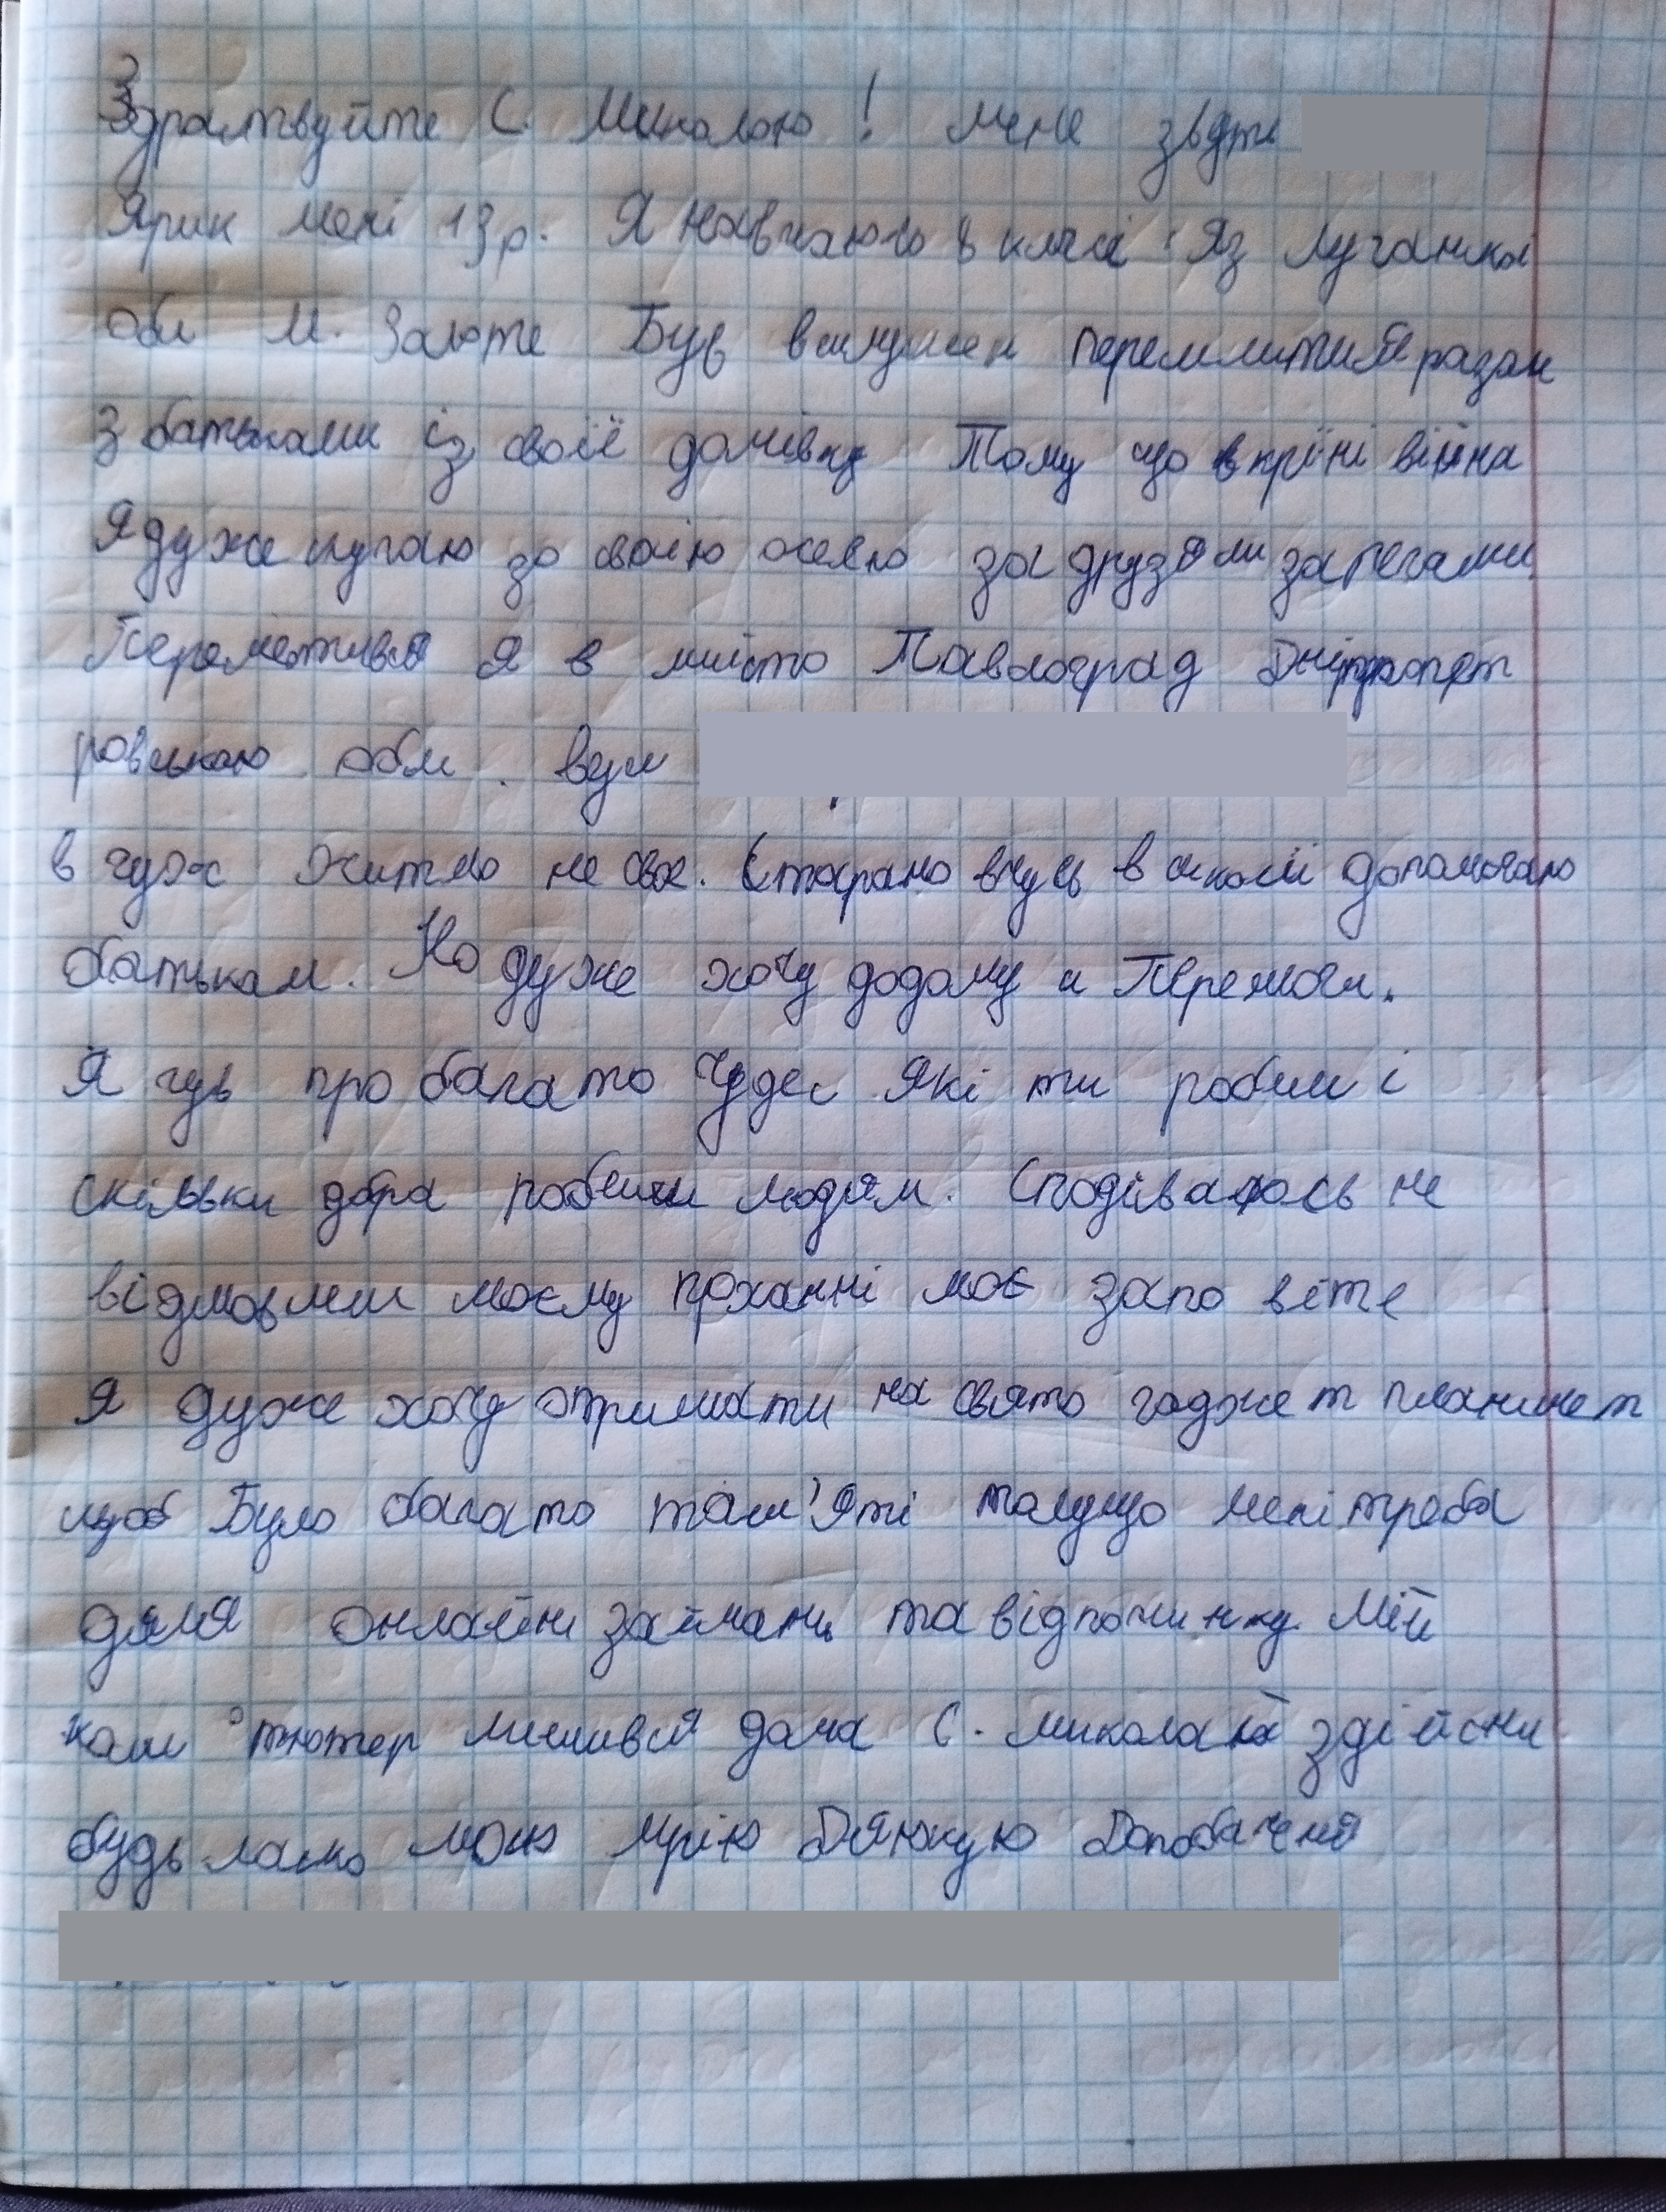 Здраствуйте С. Миколаю! мене звуть
Ярик мені 13р. Я навчаюсь 8 класі Яз Луганскої
обл м. Золоте Був вимушен переміститися разом
з батьками із своїй домівки Тому що в кріні війна
Я дуже скучаю за своїю оселю за друзями за речами.
Перемістився я в місто Павлоград Дніпропет
ровською обл. вул
в чуже житло не своє. Старано вчусь в школі допомогаю
батькам. Но дуже хочу додому и Перемоги.
Я чув про багато чудес Які ти робиш і
скільки добра робиш людям. Сподіваюсь не
відмовиш моєму проханні моє запо віте
Я дуже хочу отримати на свято гаджет планшет
щоб Було багато пам'яті томущо мені треба
для онлайн займань та відпочинку. Мій
комп'ютер лишився дома С. миколай здійсни
будь ласко мою мрію Дякую Допобачення